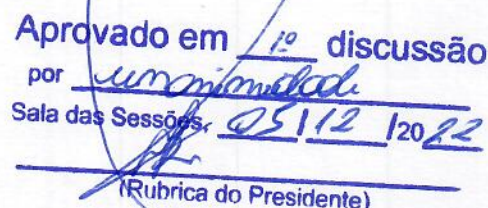 Aprovado em 1º discussão
por unanimidade
Sala das Sessões, 05 / 12 / 2022
(Rubrica do Presidente)